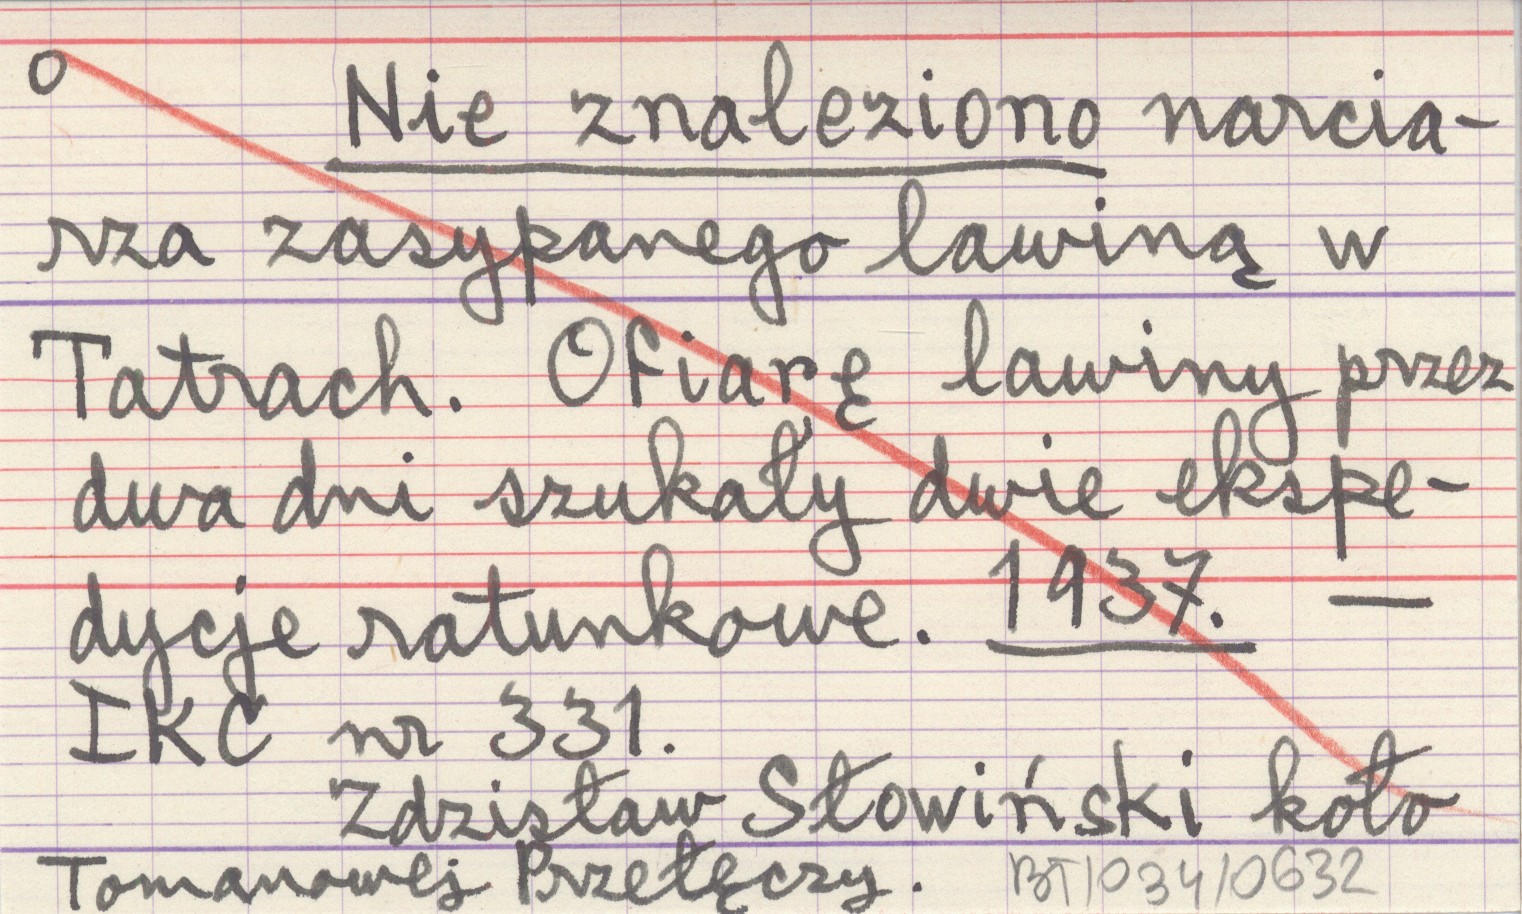 O Nie znaleziono narcia-
rza zasypanego lawiną w
Tatrach. Ofiarę lawiny przez
dwa dni szukały dwie ekspe-
dycje ratunkowe. 1937. —
IKC nr 331.
Zdzisław Słowiński koło
Tomanowej Przełęczy. BT/034/0632